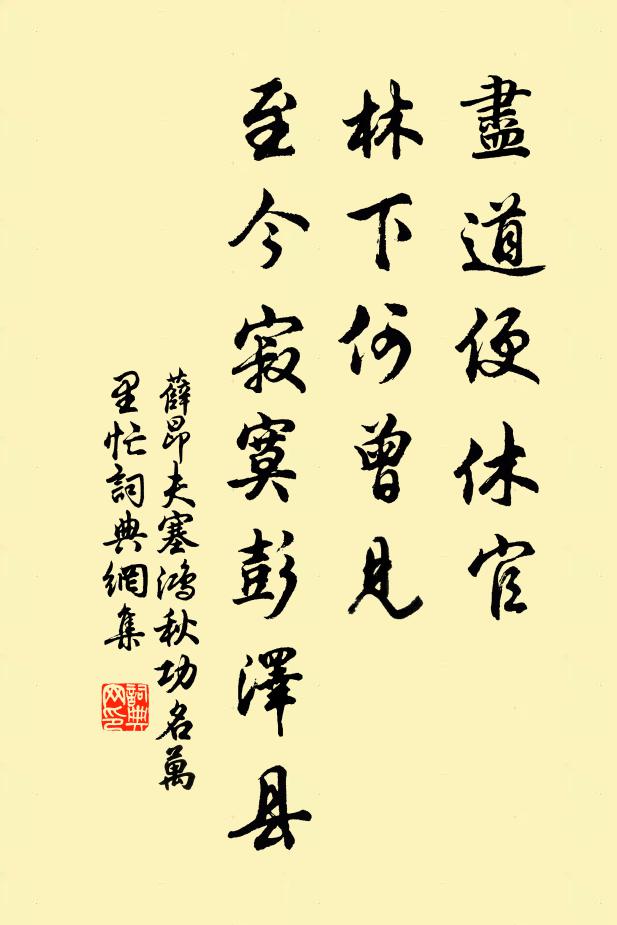 盡道便休官
林下何曾見
至今寂寞彭澤县
薛昂夫塞鴻秋功名萬
里忙詞典網集
詞典
网印